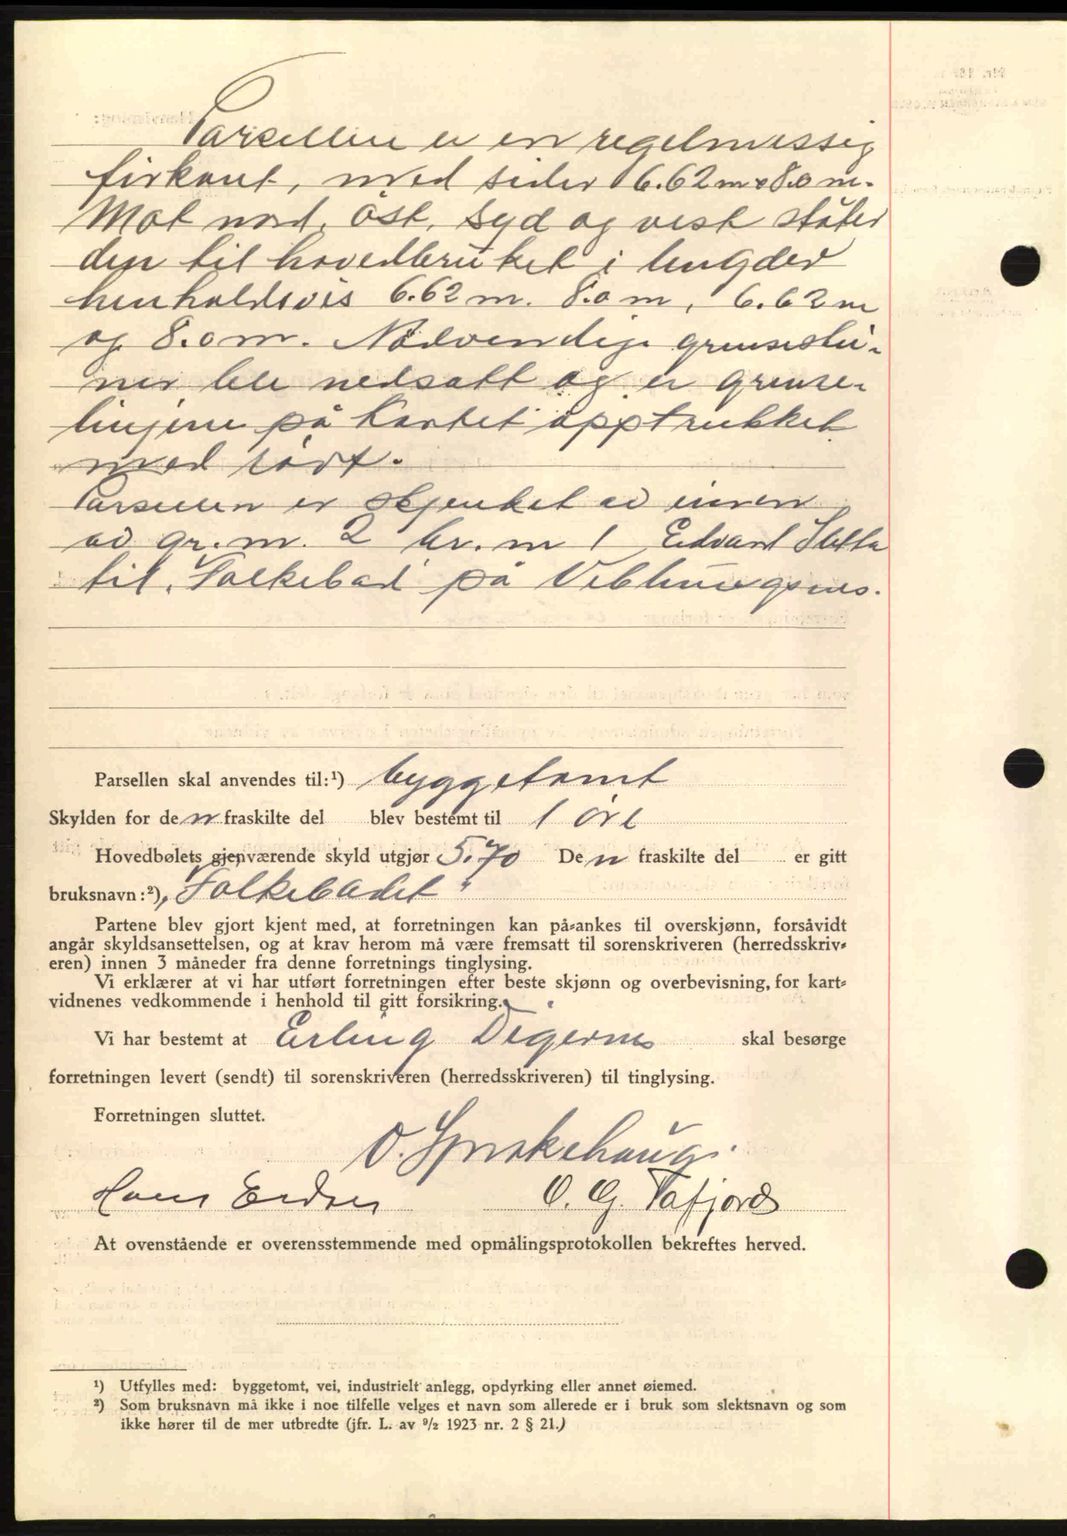 Parsellen er en regelmessig
firkant, med sider 6.62 m x 8.0 m.
Mot nord, øst, syd og vest støter
den til hovedbruket i lengder
henholdsvis 6.62 m. 8.0 m, 6.62 m
og 8.0 m. Nødvendige grensestei-
ner ble nedsatt og er grense-
linjene på kartet opptrukket
med rødt.
Parsellen er skjenket av eieren
av gr. nr. 2 br. nr 1 Edvard
til "Folkebad" på Veblungsnes.
Parsellen skal anvendes til:¹) byggetomt
Skylden for de n fraskilte del blev bestemt til 1 øre
Hovedbølets gjenværende skyld utgjør 5.70 De n fraskilte del er gitt
bruksnavn:²) "Folkebadet"
Partene blev gjort kjent med, at forretningen kan på-ankes til overskjønn, forsåvidt
angår skyldsansettelsen, og at krav herom må være fremsatt til sorenskriveren (herredsskriv-
eren) innen 3 måneder fra denne forretnings tinglysing.
Vi erklærer at vi har utført forretningen efter beste skjønn og overbevisning, for kart-
vidnenes vedkommende i henhold til gitt forsikring.
Vi har bestemt at Erling Digernes skal besørge
forretningen levert (sendt) til sorenskriveren (herredsskriveren) til tinglysing.
Forretningen sluttet.
O.
Hans O. G. Tafjord
At ovenstående er overensstemmende med opmålingsprotokollen bekreftes herved.
¹) Utfylles med: byggetomt, vei, industrielt anlegg, opdyrking eller annet øiemed.
²) Som bruksnavn må ikke i noe tilfelle velges et navn som allerede er i bruk som slektsnavn og som
ikke hører til de mer utbredte (jfr. L. av ⁹/₂ 1923 nr. 2 § 21.)